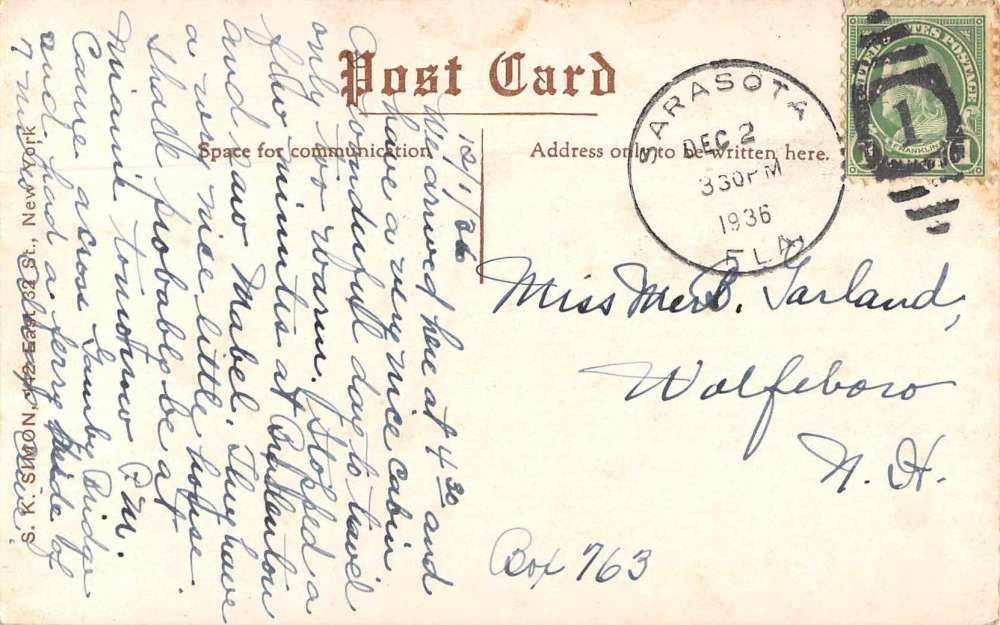 Post Card
Space for communication
Address only to be written here.
SARASOTA
DEC 2
330PM
1936
FLA.
UNITED STATES POSTAGE
FRANKLIN
1
12/1/36
We arrived here at 4 30 and
have a very nice cabin
Wonderful day to travel
only too warm. Stopped a
few minutes at Bradenton
and saw Mabel. They have
a very nice little house.
shall probably be at
Miami tomorrow P.M.
Came across Gandy Bridge
and had a ferry ride of
7 miles
Miss Garland,
Wolfeboro
N. H.
Box 763
S. K. SIMON, 142 East 32 St., New York